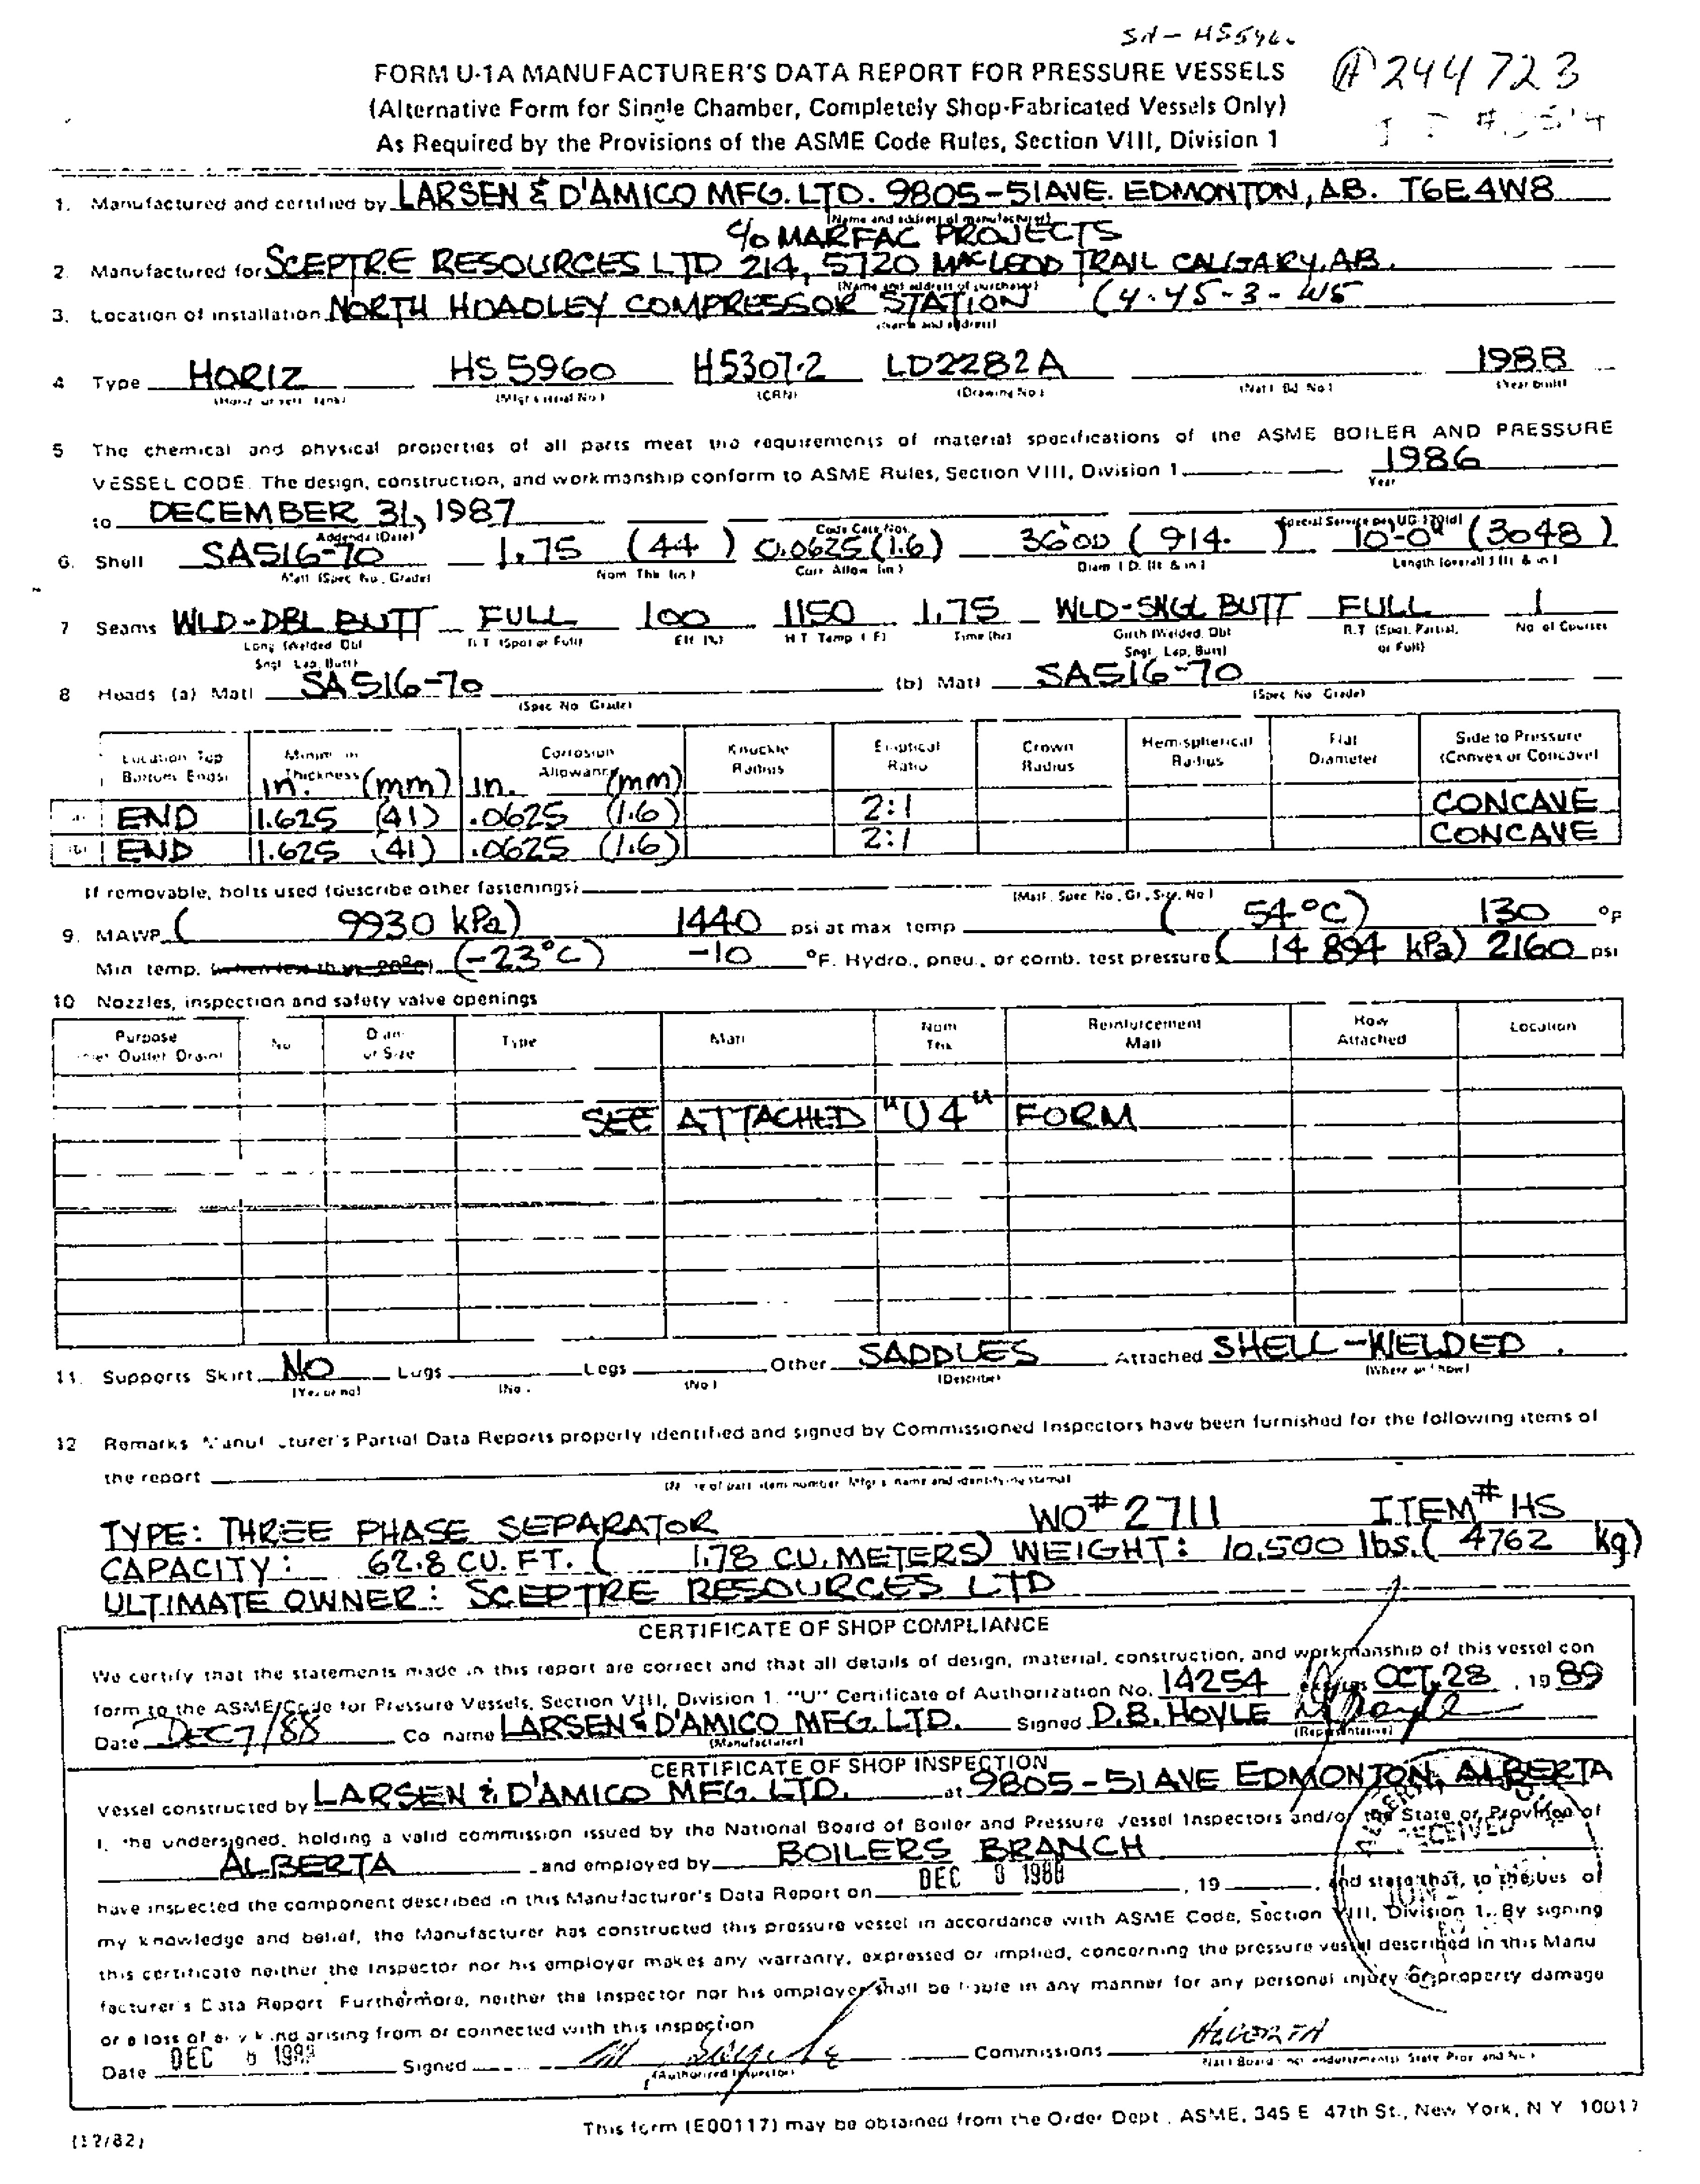 SN - HS596
FORM U-1A MANUFACTURER'S DATA REPORT FOR PRESSURE VESSELS
A 244723
(Alternative Form for Single Chamber, Completely Shop-Fabricated Vessels Only)
As Required by the Provisions of the ASME Code Rules, Section VIII, Division 1
1. Manufactured and certified by LARSEN & D'AMICO MFG. LTD. 9805-51AVE. EDMONTON, AB. T6E4W8
(Name and address of manufacturer)
c/o MARFAC PROJECTS
2. Manufactured for SCEPTRE RESOURCES LTD 214, 5720 MACLEOD TRAIL CALGARY, AB.
(Name and address of purchaser)
3. Location of installation NORTH HOADLEY COMPRESSOR STATION (4-45-3-W5
(Name and address)
4 Type HORIZ HS 5960 H5307.2 LD2282A 1988
(Horiz or vert. tank) (Mfgr's serial No.) (CRN) (Drawing No.) (Nat'l Bd. No.) (Year built)
5 The chemical and physical properties of all parts meet the requirements of material specifications of the ASME BOILER AND PRESSURE
VESSEL CODE. The design, construction, and workmanship conform to ASME Rules, Section VIII, Division 1 1986
Year
to DECEMBER 31, 1987
Addenda (Date) Code Case Nos. Special Service per UG-120(d)
6. Shell SA516-70 1.75 (44) 0.0625 (1.6) 36"OD (914.) 10'-0" (3048)
Matl (Spec No., Grade) Nom Thk (in) Corr Allow (in) Diam I.D. (ft & in) Length (overall) (ft & in)
7 Seams WLD-DBL BUTT FULL 100 1150 1.75 WLD-SNGL BUTT FULL 1
Long (Welded, Dbl R.T (Spot or Full) Eff (%) H.T Temp (F) Time (hr) Girth (Welded, Dbl R.T (Spot, Partial, No. of Courses
Sngl Lap, Butt) Sngl, Lap, Butt) or Full)
8 Heads (a) Matl SA516-70 (b) Matl SA516-70
(Spec No Grade) (Spec No Grade)
Location Top Minimum Corrosion Knuckle Elliptical Crown Hemispherical Flat Side to Pressure
Bottom Ends) Thickness Allowance Radius Ratio Radius Radius Diameter (Convex or Concave)
in. (mm) in. (mm)
(a) END 1.625 (41) .0625 (1.6) 2:1 CONCAVE
(b) END 1.625 (41) .0625 (1.6) 2:1 CONCAVE
If removable, bolts used (describe other fastenings)
(Matl. Spec No., Gr., Size, No)
9. MAWP ( 9930 kPa) 1440 psi at max temp ( 54°C) 130 °F
Min temp. (when less than -20°F) (-23°C) -10 °F. Hydro., pneu., or comb. test pressure ( 14 894 kPa) 2160 psi
10 Nozzles, inspection and safety valve openings
Purpose No Diam Type Matl Nom Reinforcement How Location
Inlet Outlet Drain) or Size Thk Matl Attached
SEE ATTACHED "U4" FORM
11. Supports Skirt NO Lugs Legs Other SADDLES Attached SHELL-WELDED
(Yes or no) (No. (No) (Describe) (Where and how)
12 Remarks Manufacturer's Partial Data Reports properly identified and signed by Commissioned Inspectors have been furnished for the following items of
the report
(Name of part item number Mfgr's name and identifying stamp)
TYPE: THREE PHASE SEPARATOR WO#2711 ITEM# HS
CAPACITY: 62.8 CU. FT. ( 1.78 CU. METERS) WEIGHT: 10,500 lbs. ( 4762 kg)
ULTIMATE OWNER: SCEPTRE RESOURCES LTD
CERTIFICATE OF SHOP COMPLIANCE
We certify that the statements made in this report are correct and that all details of design, material, construction, and workmanship of this vessel con
form to the ASME Code for Pressure Vessels, Section VIII, Division 1. "U" Certificate of Authorization No. 14254 expires OCT. 28, 19 89
Date DEC 7/88 Co name LARSEN & D'AMICO MFG. LTD. Signed D.B. HOYLE
(Manufacturer) (Representative)
CERTIFICATE OF SHOP INSPECTION
Vessel constructed by LARSEN & D'AMICO MFG. LTD. at 9805-51AVE EDMONTON, ALBERTA
I, the undersigned, holding a valid commission issued by the National Board of Boiler and Pressure Vessel Inspectors and/or the State or Province of
RECEIVED
ALBERTA and employed by BOILERS BRANCH
have inspected the component described in this Manufacturer's Data Report on DEC 8 1988, 19 , and state that, to the bes of
my knowledge and belief, the Manufacturer has constructed this pressure vessel in accordance with ASME Code, Section VIII, Division 1. By signing
this certificate neither the Inspector nor his employer makes any warranty, expressed or implied, concerning the pressure vessel described in this Manu
facturer's Data Report Furthermore, neither the Inspector nor his employer shall be liable in any manner for any personal injury or property damage
or a loss of any kind arising from or connected with this inspection
Date DEC 8 1988 Signed Commissions ALBERTA
(Authorized Inspector) (Nat'l Board (incl endorsements) State Prov and No.)
This form (E00117) may be obtained from the Order Dept., ASME, 345 E 47th St., New York, N Y 10017
(12/82)